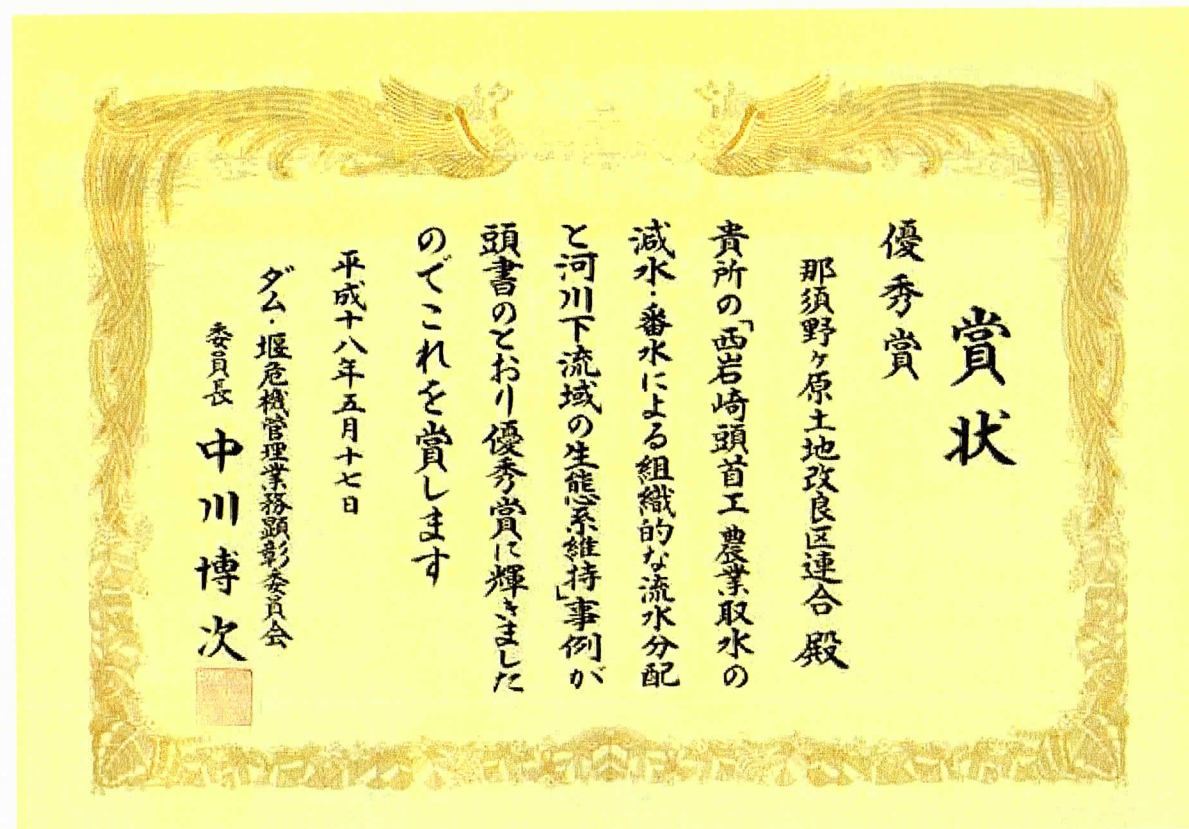 賞状
優秀賞
那須野ヶ原土地改良区連合 殿
貴所の「西岩崎頭首工農業取水の
減水・番水による組織的な流水分配
と河川下流域の生態系維持」事例が
頭書のとおり優秀賞に輝きました
のでこれを賞します
平成十八年五月十七日
ダム・堰危機管理業務顕彰委員会
委員長 中川博次